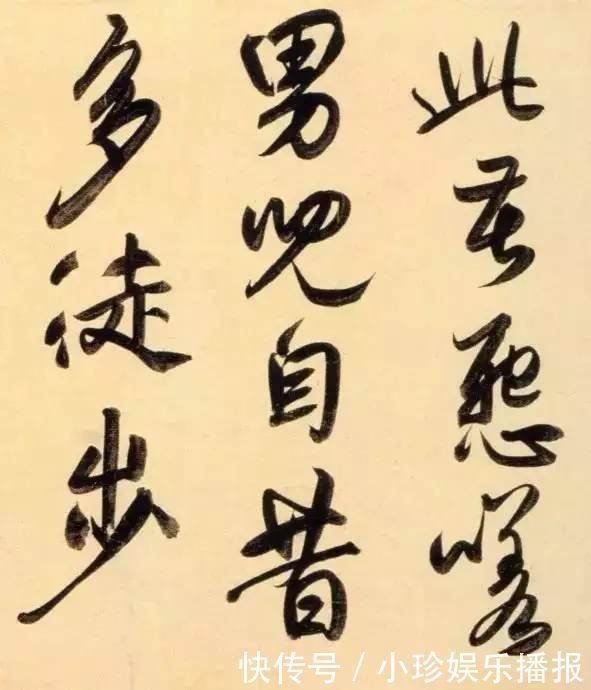 此嗟
男兒自昔
多徒步
快传号/小珍娱乐播报